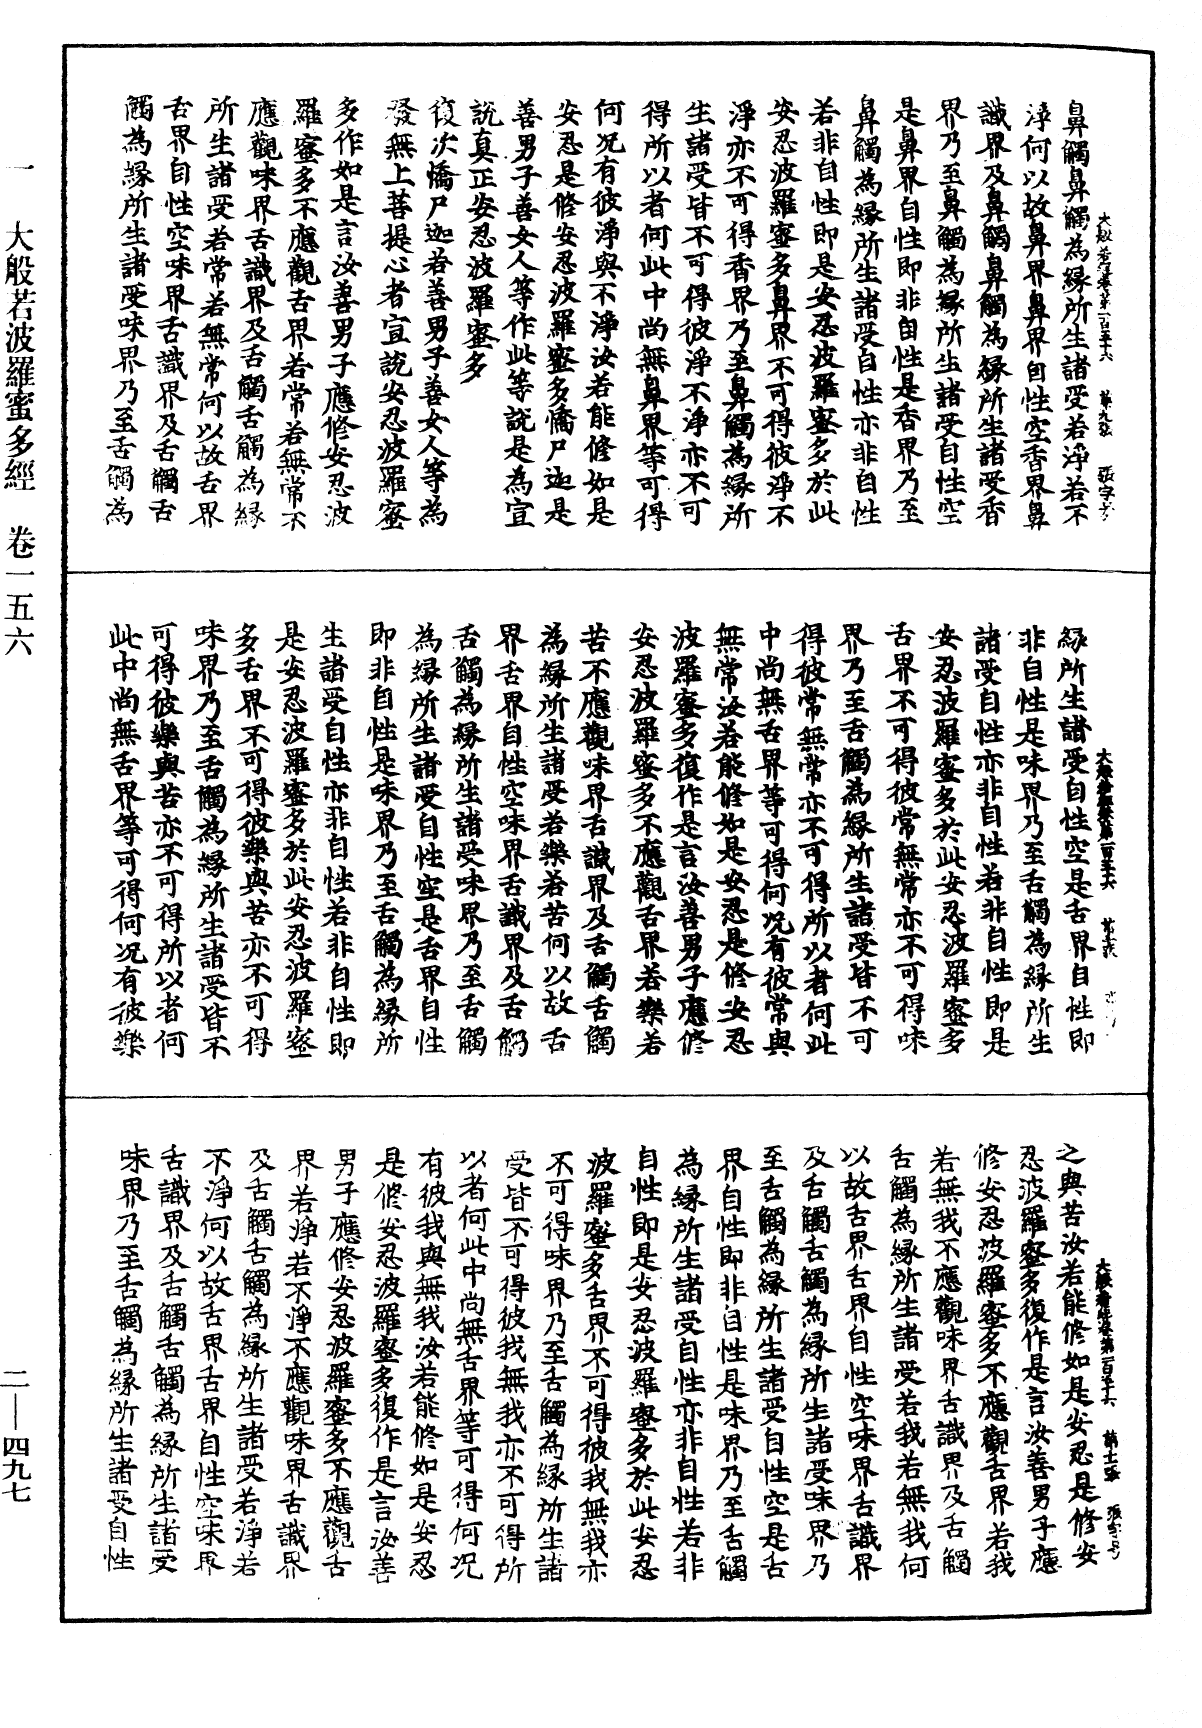 鼻觸鼻觸為緣所生諸受若淨若不
淨何以故鼻界鼻界自性空香界鼻
識界及鼻觸鼻觸為緣所生諸受香
界乃至鼻觸為緣所生諸受自性空
是鼻界自性即非自性是香界乃至
鼻觸為緣所生諸受自性亦非自性
若非自性即是安忍波羅蜜多於此
安忍波羅蜜多鼻界不可得彼淨不
淨亦不可得香界乃至鼻觸為緣所
生諸受皆不可得彼淨不淨亦不可
得所以者何此中尚無鼻界等可得
何況有彼淨與不淨汝若能修如是
安忍是修安忍波羅蜜多憍尸迦是
善男子善女人等作此等說是為宣
說真正安忍波羅蜜多
復次憍尸迦若善男子善女人等為
發無上菩提心者宣說安忍波羅蜜
多作如是言汝善男子應修安忍波
羅蜜多不應觀舌界若常若無常不
應觀味界舌識界及舌觸舌觸為緣
所生諸受若常若無常何以故舌界
舌界自性空味界舌識界及舌觸舌
觸為緣所生諸受味界乃至舌觸為
大般若經卷第一百五十六 第九張 張字号
緣所生諸受自性空是舌界自性即
非自性是味界乃至舌觸為緣所生
諸受自性亦非自性若非自性即是
安忍波羅蜜多於此安忍波羅蜜多
舌界不可得彼常無常亦不可得味
界乃至舌觸為緣所生諸受皆不可
得彼常無常亦不可得所以者何此
中尚無舌界等可得何況有彼常與
無常汝若能修如是安忍是修安忍
波羅蜜多復作是言汝善男子應修
安忍波羅蜜多不應觀舌界若樂若
苦不應觀味界舌識界及舌觸舌觸
為緣所生諸受若樂若苦何以故舌
界舌界自性空味界舌識界及舌觸
舌觸為緣所生諸受味界乃至舌觸
為緣所生諸受自性空是舌界自性
即非自性是味界乃至舌觸為緣所
生諸受自性亦非自性若非自性即
是安忍波羅蜜多於此安忍波羅蜜
多舌界不可得彼樂與苦亦不可得
味界乃至舌觸為緣所生諸受皆不
可得彼樂與苦亦不可得所以者何
此中尚無舌界等可得何況有彼樂
大般若經卷第一百五十六
之與苦汝若能修如是安忍是修安
忍波羅蜜多復作是言汝善男子應
修安忍波羅蜜多不應觀舌界若我
若無我不應觀味界舌識界及舌觸
舌觸為緣所生諸受若我若無我何
以故舌界舌界自性空味界舌識界
及舌觸舌觸為緣所生諸受味界乃
至舌觸為緣所生諸受自性空是舌
界自性即非自性是味界乃至舌觸
為緣所生諸受自性亦非自性若非
自性即是安忍波羅蜜多於此安忍
波羅蜜多舌界不可得彼我無我亦
不可得味界乃至舌觸為緣所生諸
受皆不可得彼我無我亦不可得所
以者何此中尚無舌界等可得何況
有彼我與無我汝若能修如是安忍
是修安忍波羅蜜多復作是言汝善
男子應修安忍波羅蜜多不應觀舌
界若淨若不淨不應觀味界舌識界
及舌觸舌觸為緣所生諸受若淨若
不淨何以故舌界舌界自性空味界
舌識界及舌觸舌觸為緣所生諸受
味界乃至舌觸為緣所生諸受自性
大般若經卷第一百五十六 第十一張 張字号
一 大般若波羅蜜多經 卷一五六
二—四九七